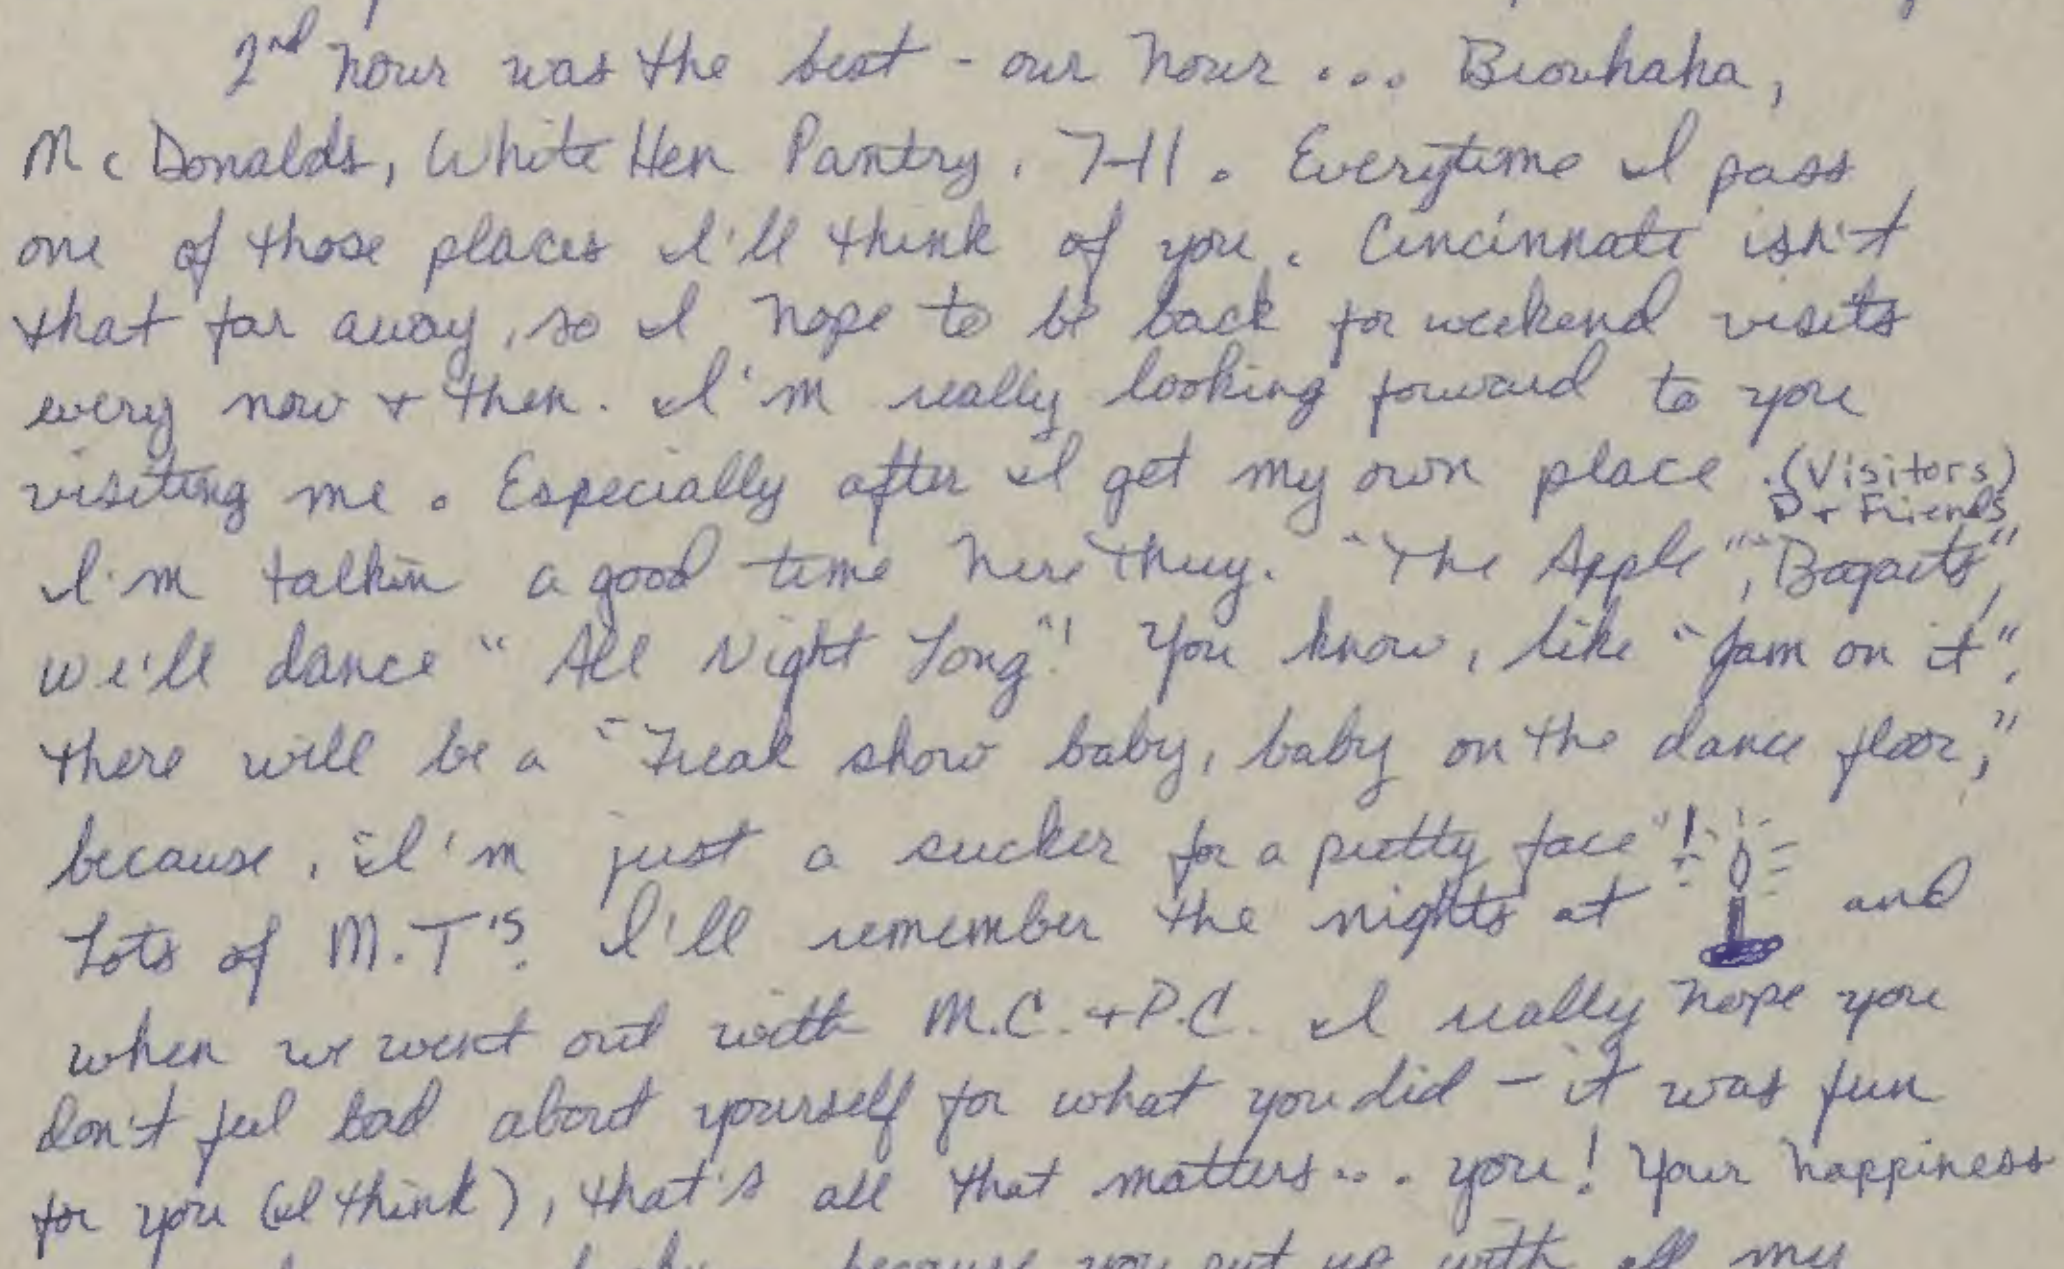 2nd hour was the best - our hour ... Brouhaha,
McDonalds, White Hen Pantry, 7-11. Everytime I pass
one of those places I'll think of you. Cincinnati isn't
that far away, so I hope to be back for weekend visits
every now + then. I'm really looking forward to you
visiting me. Especially after I get my own place. (Visitors)
D + Friends
I'm talkin a good time here Thuy. "The Apple", "Bogarts",
we'll dance "All Night Long"! You know, like "Jam on it",
there will be a "Freak show baby, baby on the dance floor,"
because, "I'm just a sucker for a pretty face"!
Lots of M.T's. I'll remember the nights at and
when we went out with M.C. + P.C. I really hope you
don't feel bad about yourself for what you did - it was fun
for you (I think), that's all that matters... you! Your happiness
because you put up with all my